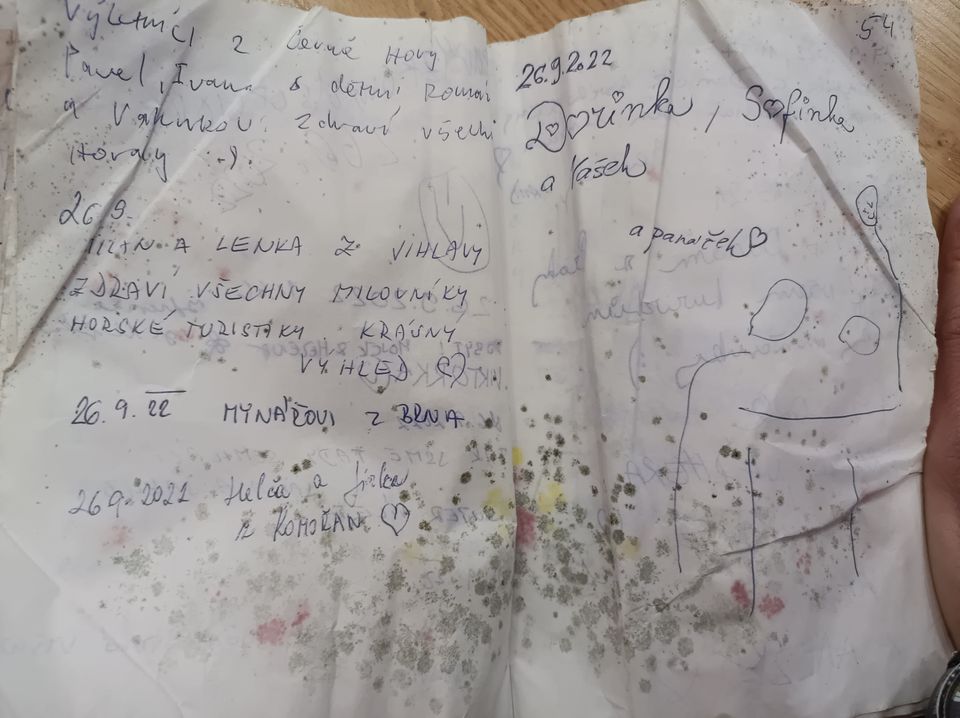 Výletníci z Černé Hory
Pavel, Ivana s dětmi Roman
a zdraví všechi
Hovaly :-).
26.9.
MILAN A LENKA Z VIHLAVY
ZDRAVÍ VŠECHNY MILOVNÍKY
HORSKÉ TURISTIKY KRÁSNY
VÝHLED ♡
26.9.22 MYNÁŘOVI Z BRNA
26.9.2021 Helča a Jirka
z KOMOŘAN ♡
54
26.9.2022
Dorinka, Sofinka
a Vašek
a panáček ♡